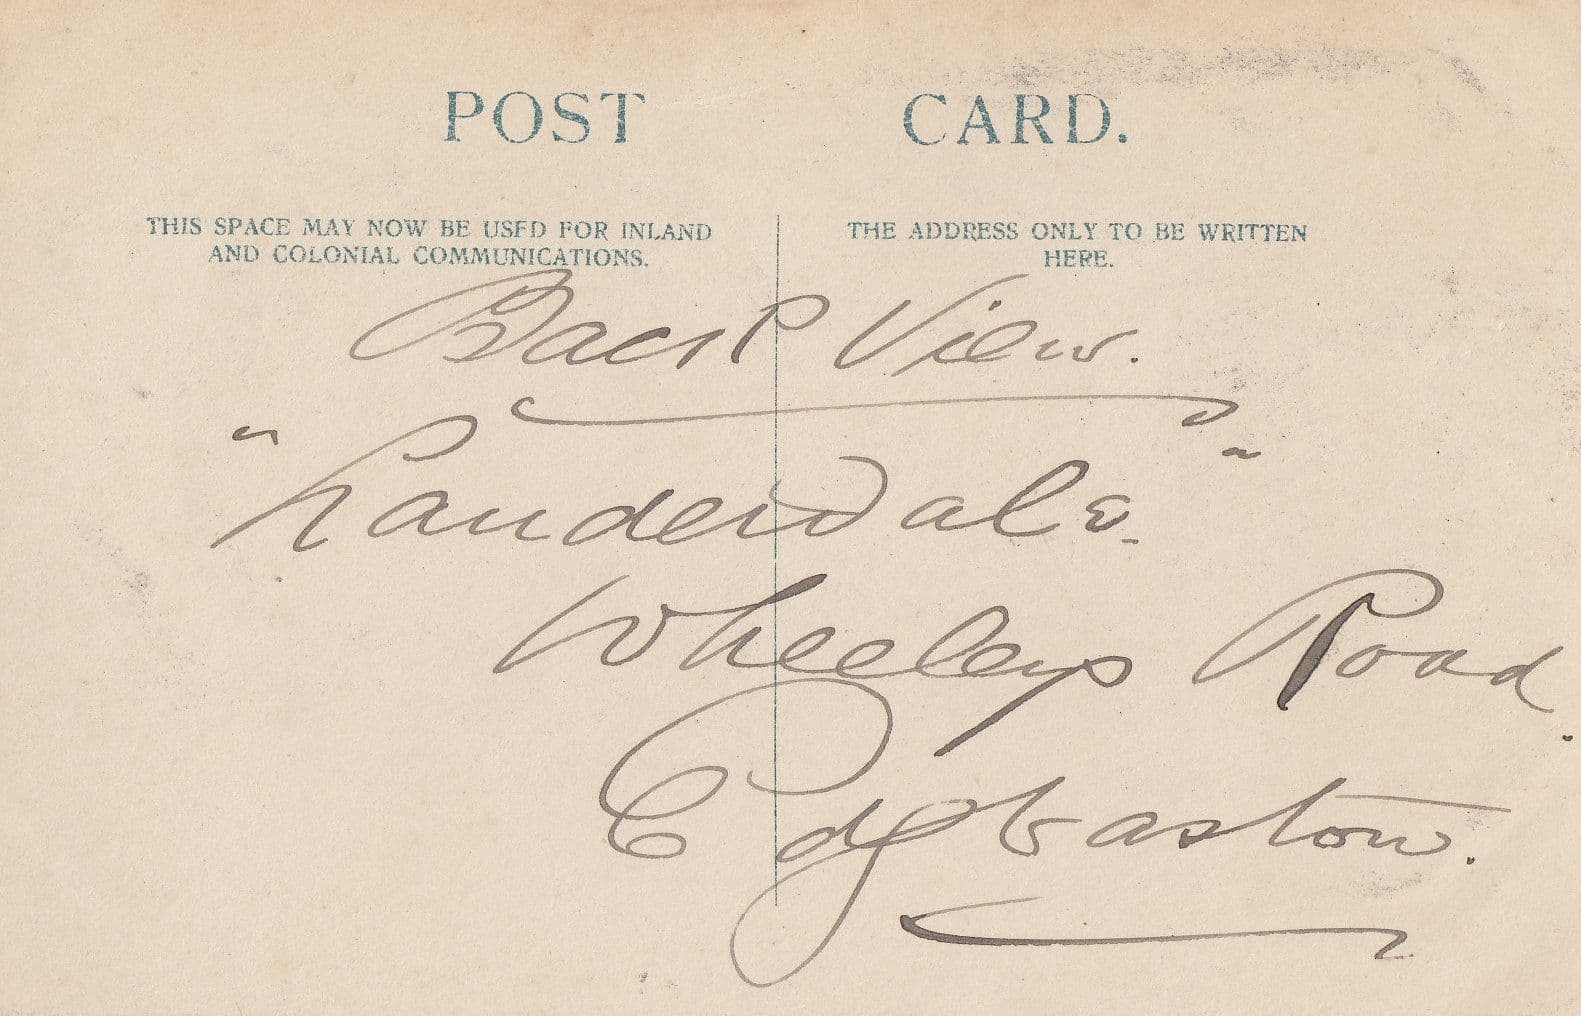 POST CARD.
THIS SPACE MAY NOW BE USED FOR INLAND
AND COLONIAL COMMUNICATIONS.
THE ADDRESS ONLY TO BE WRITTEN
HERE.
Back View.
"Lauderdale"
Wheeleys Road.
Edgbaston.